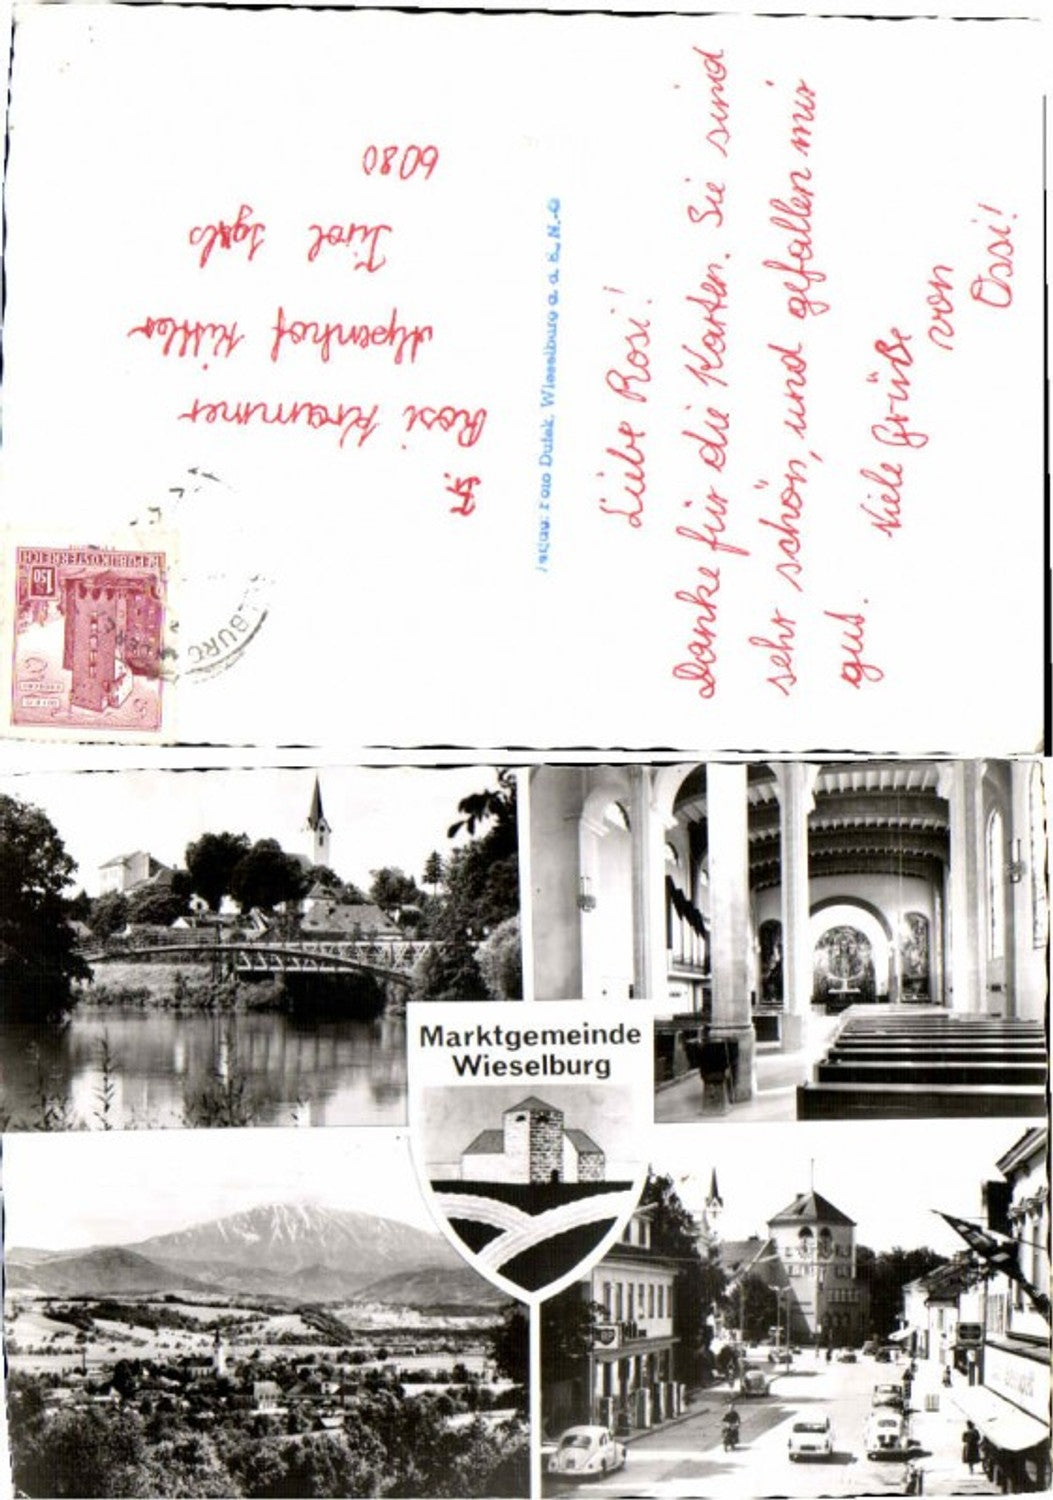 Liebe Rosi!
Danke für die Karten. Sie sind
sehr schön, und gefallen mir
gut.
Viele Grüße
von
Ossi!
Verlag: Foto Dutek, Wieselburg a. d. E., N.-Ö
Fr.
Rosi Krammer
Alpenhof
Tirol Igls
6080
REPUBLIK ÖSTERREICH
1.50
BURG
Marktgemeinde
Wieselburg